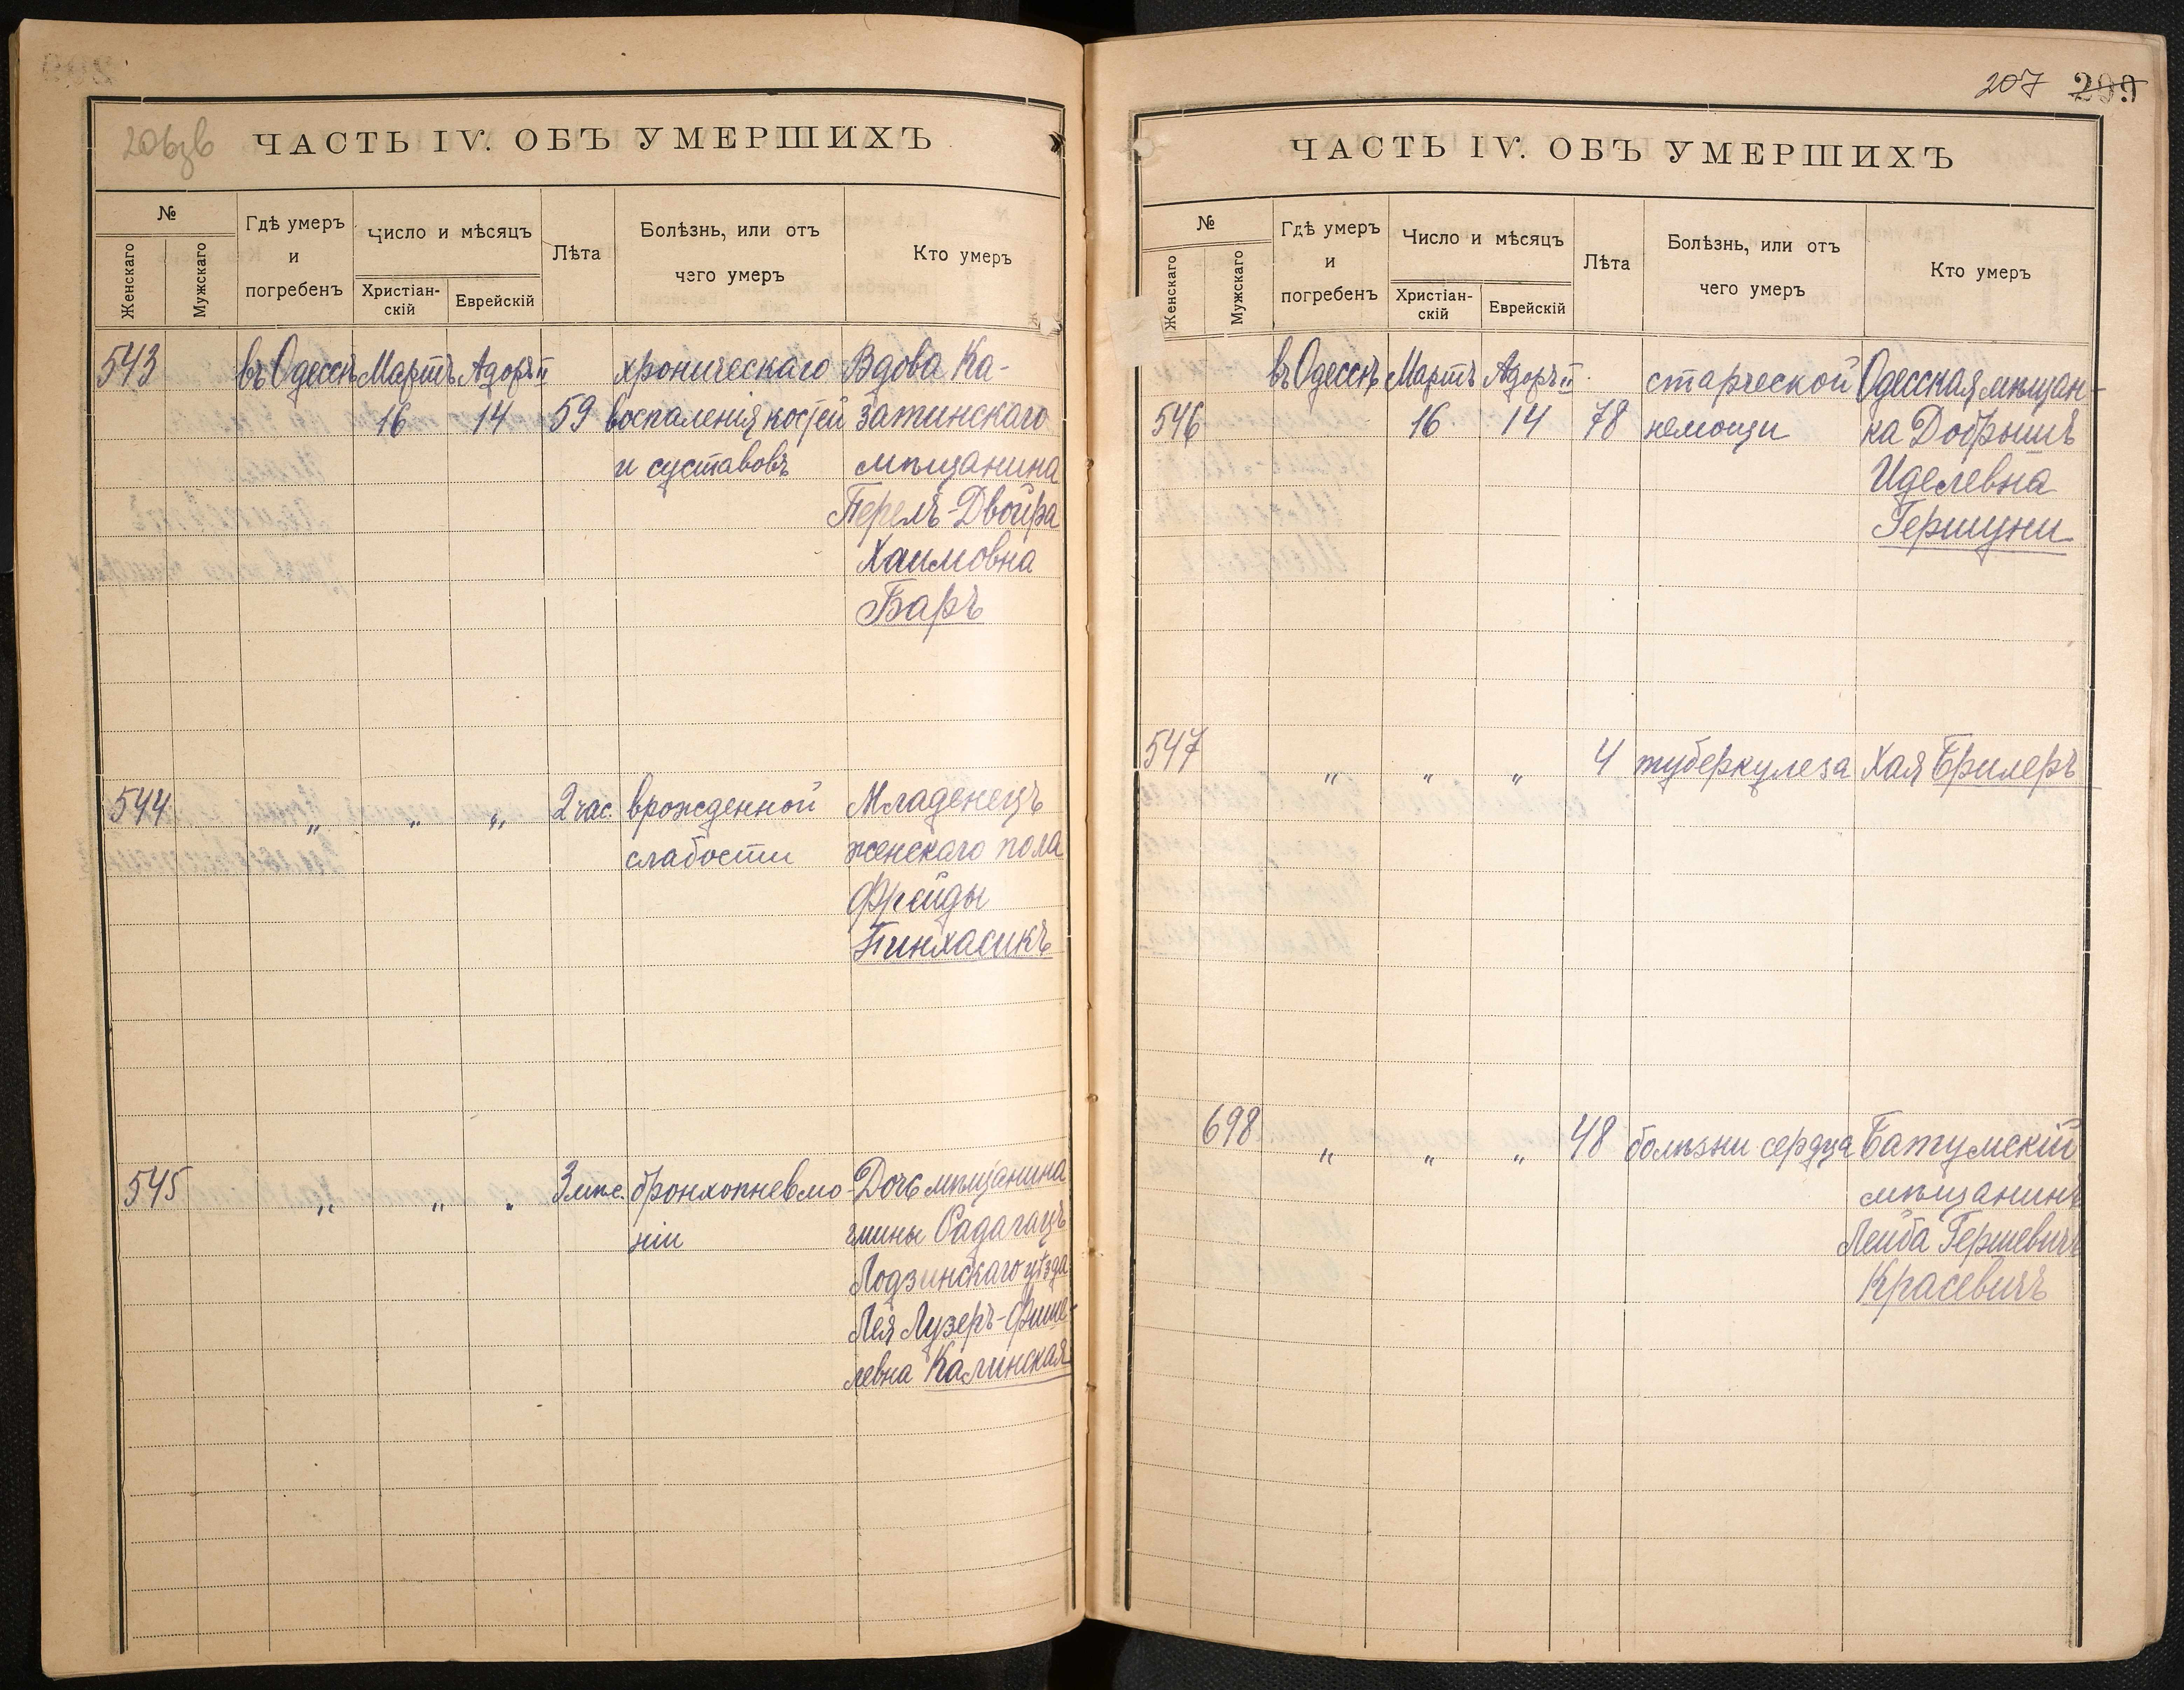 206зв
ЧАСТЬ IV. ОБЪ УМЕРШИХЪ
№
Женскаго
Мужскаго
Гдѣ умеръ
и
погребенъ
Число и мѣсяцъ
Христіан-
скій
Еврейскій
Лѣта
Болѣзнь, или отъ
чего умеръ
Кто умеръ
543 въ Одессѣ Мартъ Адоръ II хроническаго Вдова Ка-
16 14 59 воспаленія костей затинскаго
и суставовъ мѣщанина
Перель-Двойра
Хаимовна
Баръ
544 „ „ „ 2 час. врожденной Младенецъ
слабости женскаго пола
Фрейды
Пинхасикъ
545 „ „ „ 3 мѣс. бронхопневмо- Дочь мѣщанина
ніи гмины Садагацъ
Лодзинскаго уѣзда
Лея Лузеръ-Фише-
левна Калинская
207 209
ЧАСТЬ IV. ОБЪ УМЕРШИХЪ
№
Женскаго
Мужскаго
Гдѣ умеръ
и
погребенъ
Число и мѣсяцъ
Христіан-
скій
Еврейскій
Лѣта
Болѣзнь, или отъ
чего умеръ
Кто умеръ
въ Одессѣ Мартъ Адоръ II старческой Одесская мѣщан-
546 16 14 78 немощи ка Добрышъ
Иделевна
Гершуни
547 „ „ „ 4 туберкулеза Хая Брилеръ
698 „ „ „ 48 болѣзни сердца Батумскій
мѣщанинъ
Лейба Гершевичъ
Красевичъ